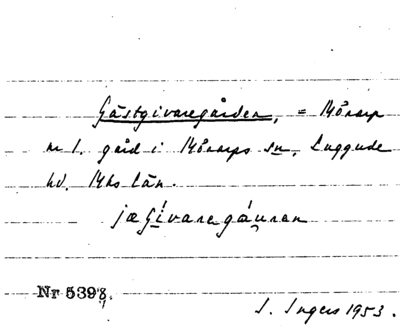 Gästgivaregården, = Mörarp
nr 1. gård i Mörarps sn, Luggude
hd. Mhs län.
jæSívaregáuren
Nr 5398,
I. Ingers 1953.